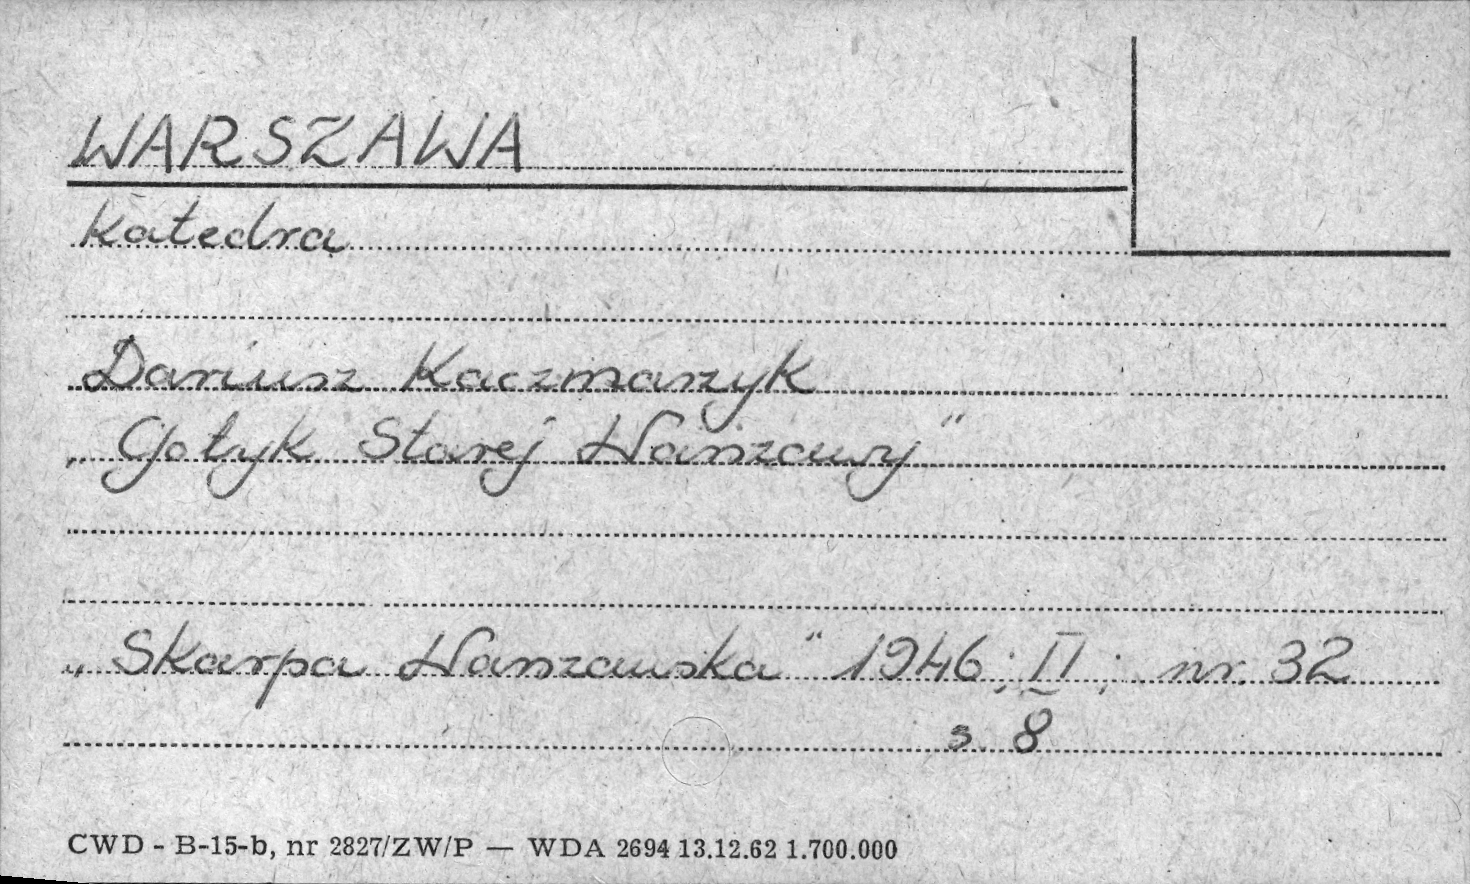 WARSZAWA
Katedra
Dariusz Kaczmarzyk
„Gotyk Starej Warszawy"
„Skarpa Warszawska" 1946; II; nr. 32
s. 8
CWD - B-15-b, nr 2827/ZW/P — WDA 2694 13.12.62 1.700.000